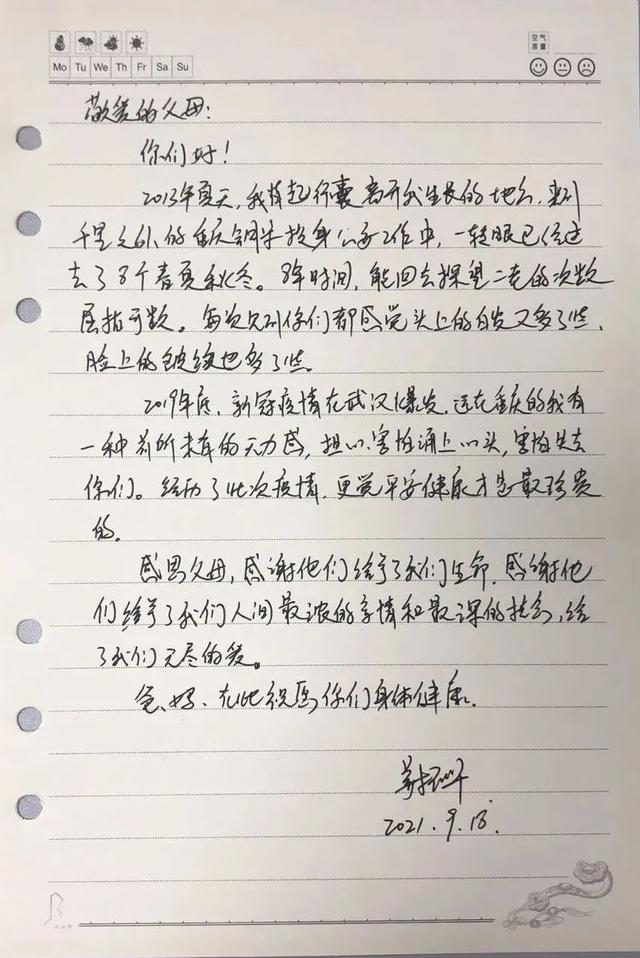 空气
质量
Mo Tu We Th Fr Sa Su
敬爱的父母：
你们好！
2013年夏天，我背起行囊离开我生长的地方，来到
千里之外的重庆铜梁投身公安工作中，一转眼已经过
去了8个春夏秋冬。8年时间，能回去探望二老的次数
屈指可数。每次见到你们都感觉头上的白发又多了些，
脸上的皱纹也多了些。
2019年底，新冠疫情在武汉爆发，远在重庆的我有
一种前所未有的无力感，担心、害怕涌上心头，害怕失去
你们。经历了此次疫情，更觉平安健康才是最珍贵
的。
感恩父母，感谢他们给予了我们生命，感谢他
们给予了我们人间最浓的亲情和最深的挂念，给
了我们无尽的爱。
爸、妈、在此祝愿你们身体健康。
2021.9.18.